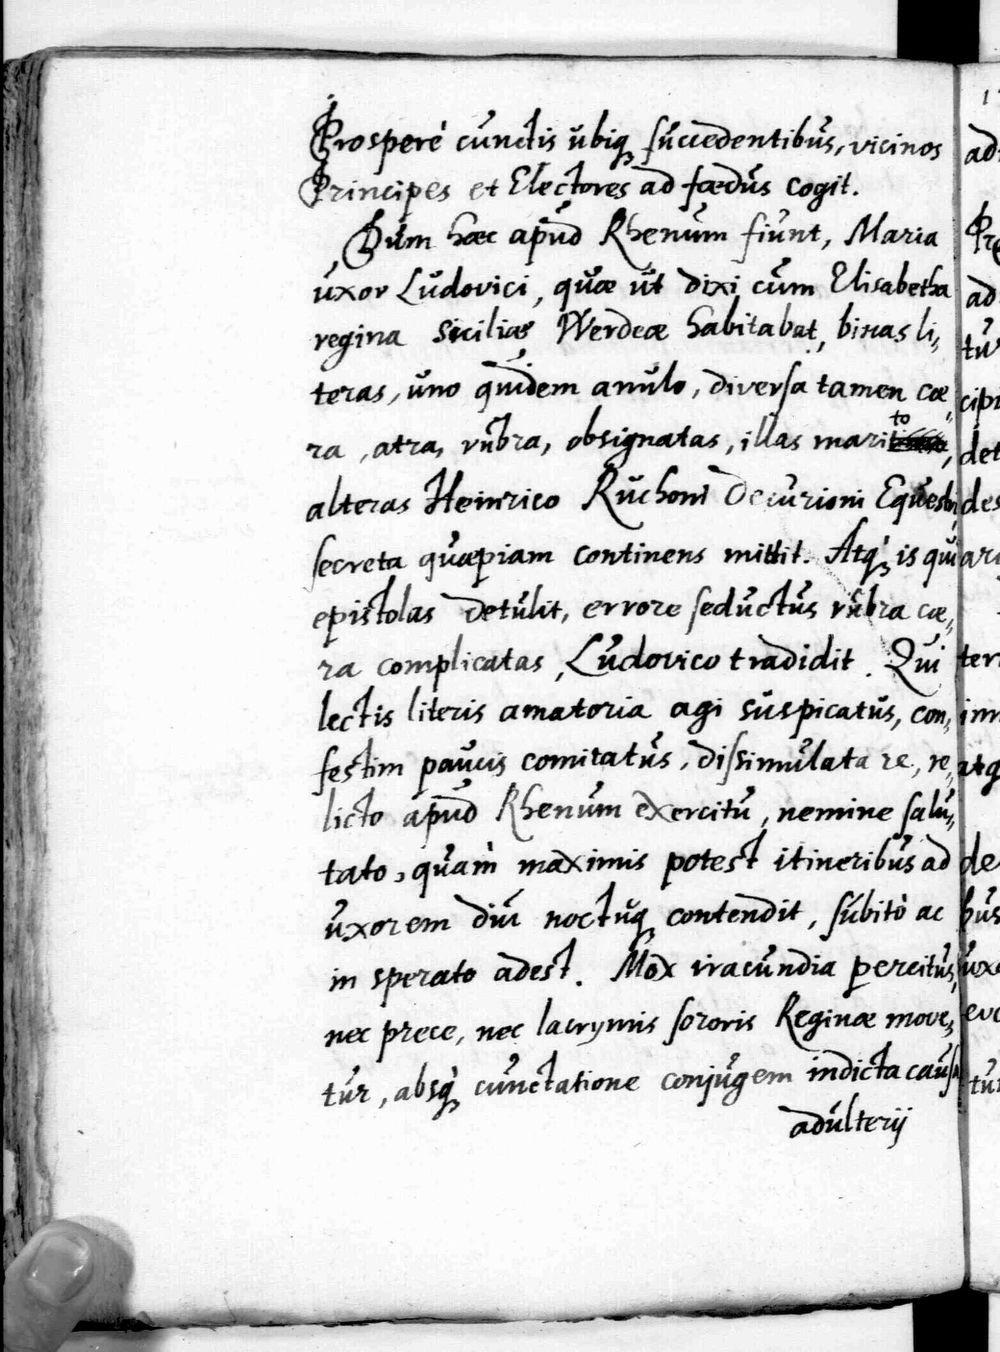 Prosperè cunctis ubiq; succedentibus, vicinos
Principes et Electores ad foedus cogit.
Dum haec apud Rhenum fiunt, Maria
uxor Ludovici, quae ut dixi cum Elisabetha
regina Siciliae Werdeae habitabat, binas li„
teras, uno quidem anulo, diversa tamen cae„
ra, atra, rubra, obsignatas, illas marito,
alteras Heinrico Ruchoni Decurioni Equestri
secreta quaepiam continens mittit. Atq; is qui
epistolas detulit, errore seductus rubra cae„
ra complicatas, Ludovico tradidit. Qui
lectis literis amatoria agi suspicatus, con„
festim paucis comitatus, dissimulata re, re„
licto apud Rhenum exercitu, nemine salu„
tato, quàm maximis potest itineribus ad
uxorem diu noctuq; contendit, subitò ac
in sperato adest. Mox iracundia percitus,
nec prece, nec lacrymis sororis Reginae move„
tur, absq; cunctatione conjugem indicta causa
adulterij